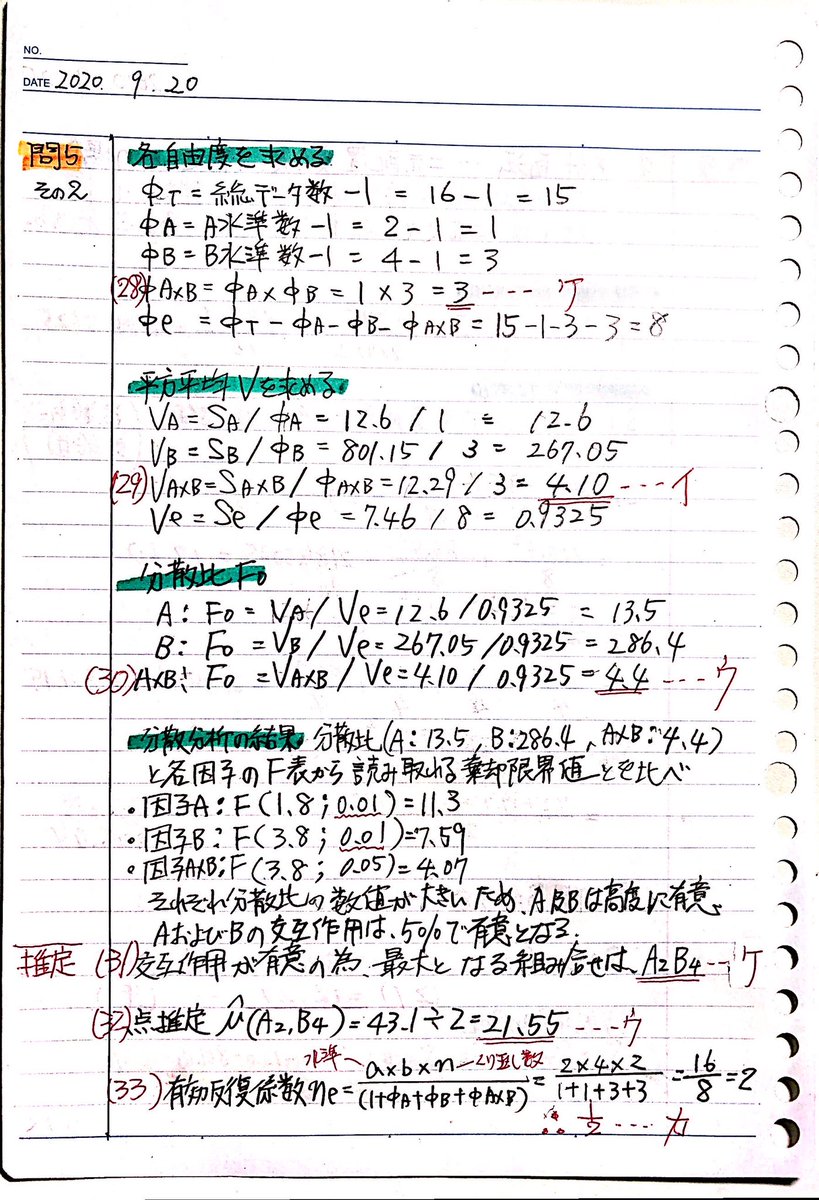 NO.
DATE 2020. 9. 20
問5 各自由度を求める
その2 φT = 総データ数 -1 = 16-1 = 15
φA = A水準数 -1 = 2-1 = 1
φB = B水準数 -1 = 4-1 = 3
(28) φA×B = φA×φB = 1×3 = 3 ---- ケ
φe = φT-φA-φB-φA×B = 15-1-3-3 = 8
平方平均Vを求める
VA = SA/φA = 12.6/1 = 12.6
VB = SB/φB = 801.15/3 = 267.05
(29) VA×B = SA×B/φA×B = 12.29/3 = 4.10 ---- イ
Ve = Se/φe = 7.46/8 = 0.9325
分散比F₀
A: F₀ = VA/Ve = 12.6/0.9325 = 13.5
B: F₀ = VB/Ve = 267.05/0.9325 = 286.4
(30) A×B: F₀ = VA×B/Ve = 4.10/0.9325 = 4.4 ---- ウ
分散分析の結果 分散比(A:13.5, B:286.4, A×B:4.4)
と各因子のF表から読み取れる棄却限界値とを比べ
・因子A:F(1.8;0.01)=11.3
・因子B:F(3.8;0.01)=7.59
・因子A×B:F(3.8;0.05)=4.07
それぞれ分散比の数値が大きいため、A及Bは高度に有意。
AおよびBの交互作用は、5%で有意となる
推定 (31) 交互作用が有意の為、最大となる組み合せは、A₂B₄ --- ケ
(32) 点推定 μ̂(A₂,B₄) = 43.1÷2 = 21.55 ---- ウ
水準 くり返し数
(33) 有効反復係数 ne = a×b×n/(1+φA+φB+φA×B) = 2×4×2/1+1+3+3 = 16/8 = 2
∴ 1/2 ---- カ